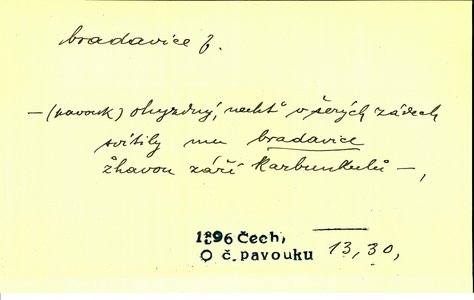 bradavice f.
— (pavouk) ohyzdný, nechť v šerých zádech
svítily mu bradavice
žhavou září karbunkulů —,
1896 Čech,
O č. pavouku 13, 30,